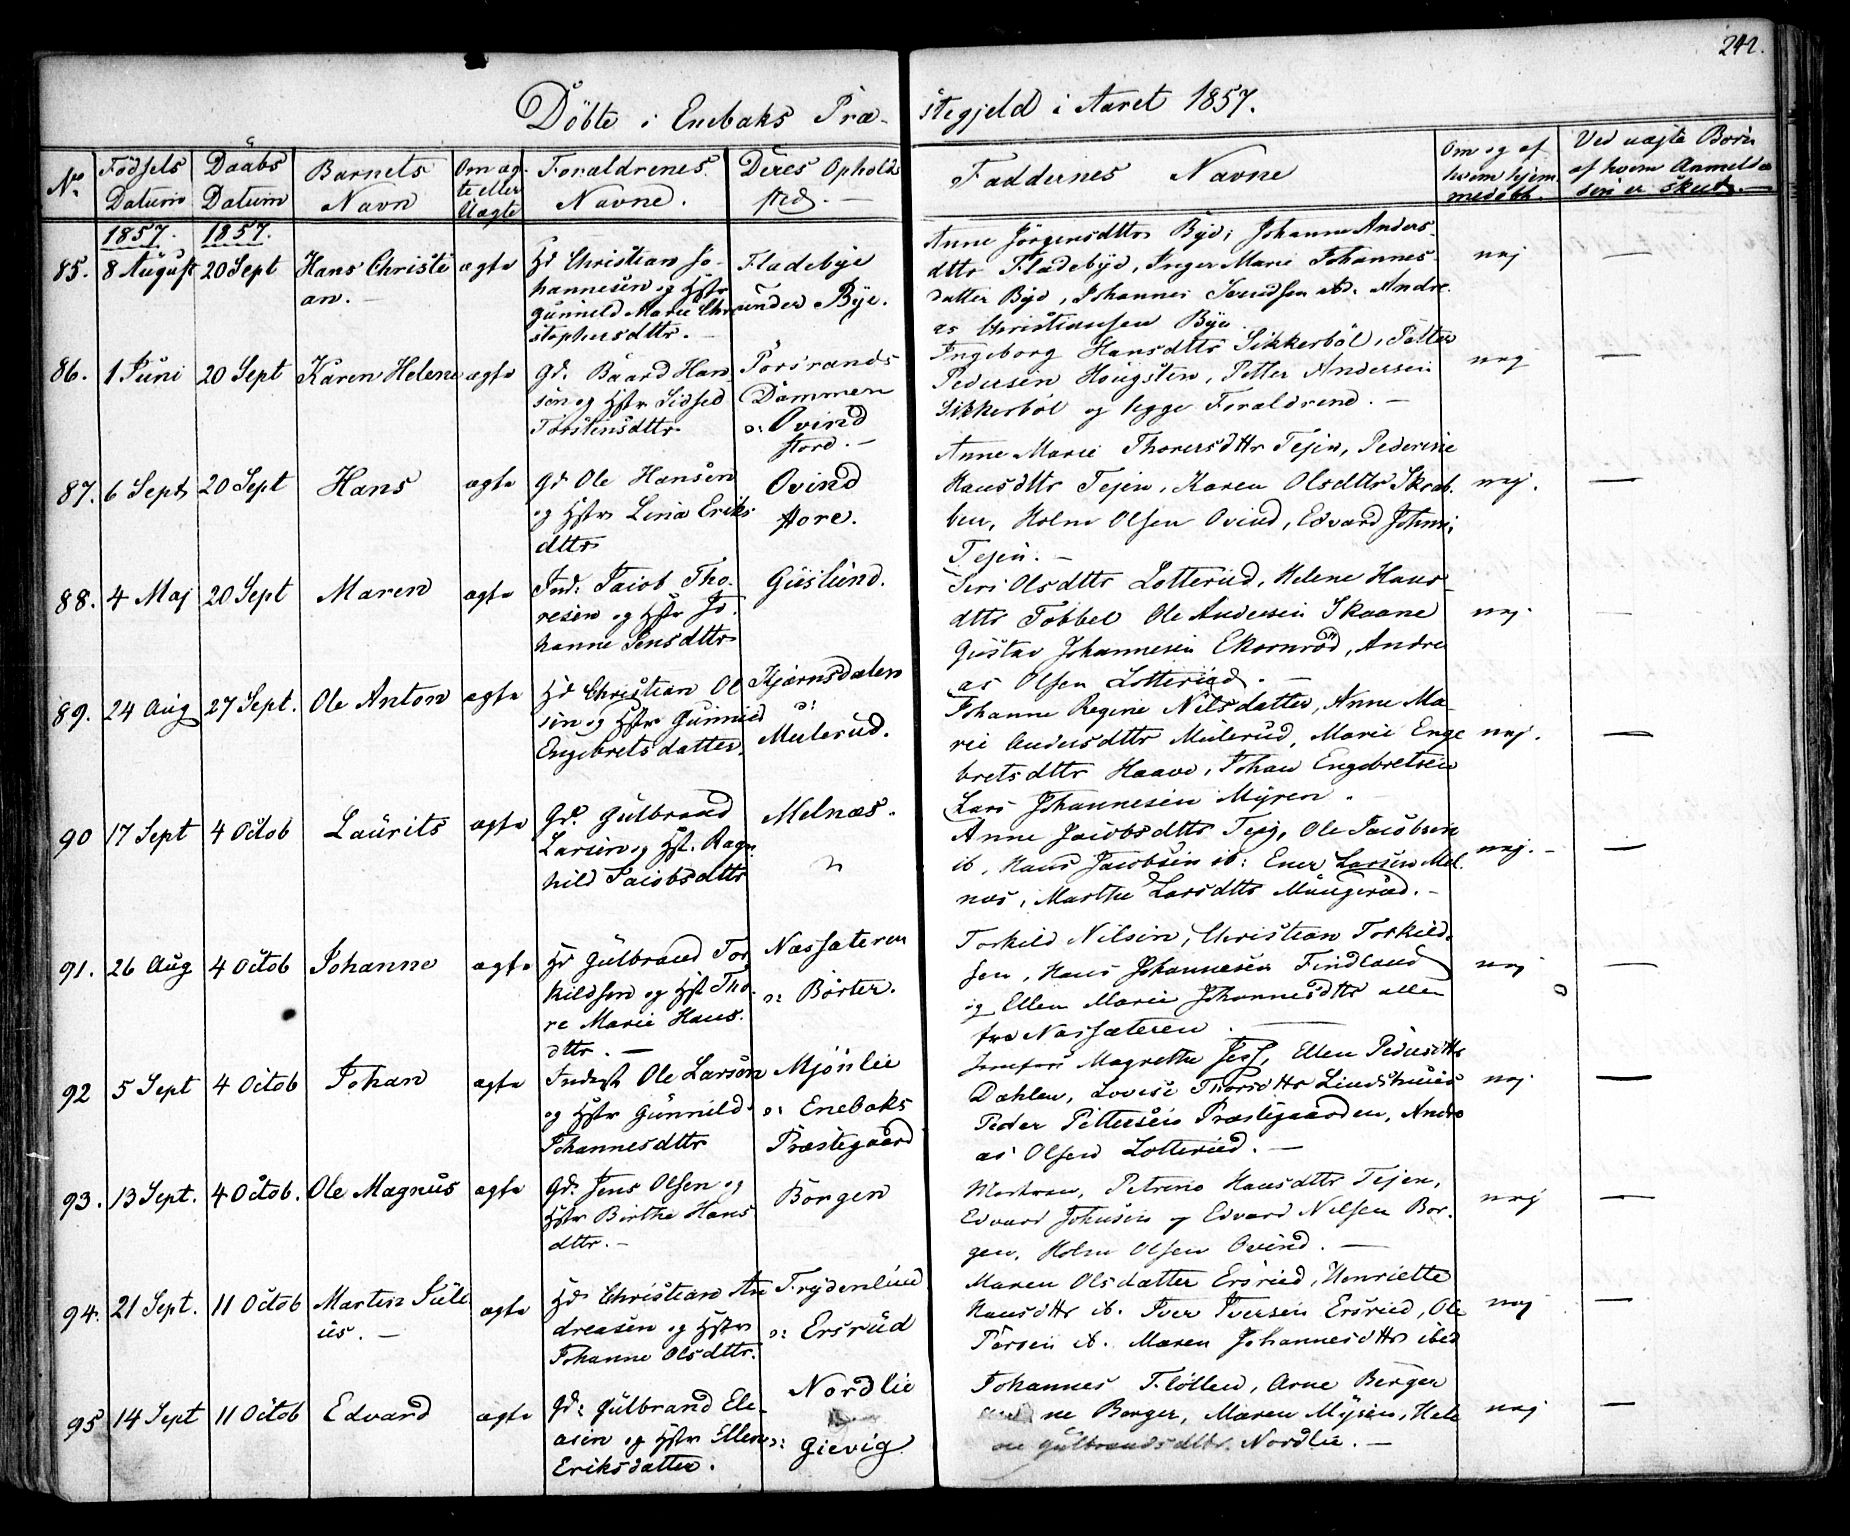 242.
Döbte i Enebaks Præ- stegjeld i Aaret 1857.
No. | Födsels Datum | Daabs Datum | Barnets Navn | Om æg- te eller Uægte | Forældrenes Navne. | Deres Opholds sted. | Faddernes Navne | Om og af hvem hjem- medöbt. | Ved uægte Börn af hvem Anmeldel- sen er skeet.
1857. 1857.
85. 8 August 20 Sept Hans Christi an. ægte
Hd Christian Jo-
hannesen og Hstr
Gunnild Marie Chri
stophersdttr.
Fladebye
under Bye.
Anne Jörgensdttr Bye, Johanne Anders-
dttr Fladebye, Inger Marie Johannes
datter Bye, Johannes ibd. Andre
as Christiansen Bye
nej —
86. 1 Juni 20 Sept Karen Helene ægte
Gd. Baard Han
sen og Hstr Sidsel
Torstensdttr
Dammen
o: Ovind
store.
Ingeborg Hansdttr Sikkerböl, Petter
Pedersen Hougsten, Petter Andersen
Sikkerböl og begge Forældrene.
nej —
87. 6 Sept 20 Sept Hans ægte
Gd Ole Hansen
og Hstr Lina Eriks
dttr
Ovind
store.
Anne Marie Thorersdttr Tejen, Pederine
Hansdttr Tejen, Karen Olsdttr Skreb-
ben, Holm Olsen Ovind, Edvard Johns.
Tejen.
nej. —
88. 4 Maj 20 Sept Maren ægte
Ind: Jacob Tho-
resen og Hstr Jo-
hanne Jensdttr
Guslund.
Siri Olsdttr Lotterud, Helene Hans-
dttr Tobbel Ole Andersen Skaane
Gustav Johannesen Ekornröd, Andre
as Olsen Lotterud.
nej. —
89. 24 Aug 27 Sept. Ole Anton ægte
Hd Christian Ol
sen og Hstr Gunnild
Engebretsdatter.
Kjærnsdalen
o:
Mulerud.
Johanne Regine Nilsdatter, Anne Ma-
rie Andersdttr Mulerud, Marie Enge
bretsdttr Haave, Johan Engebretsen
Lars Johannesen Myren.
nej. —
90 17 Sept 4 Octob Laurits ægte
Gd. Gulbrand
Larsen og Hst. Ragn
hild Jacobsdttr
Melnæs.
Anne Jacobsdttr Tejg, Ole Jacobsen
ib, Hans Jacobsen ib: Ener Larsen Mel.
næs, Marthe Larsdttr Maugerud.
nej. —
91. 26 Aug 4 Octob Johanne ægte
Hd Gulbrand Tor
kildsen og Hst Tho
re Marie Hans.
dttr.
Næssæteren
o: Börter.
Torkild Nilsen, Christian Torkild-
sen, Hans Johannesen Findland
og Ellen Marie Johannesdttr alle
fra Næssæteren.
nej —
92 5 Sept 4 Octob Johan ægte
Inderst Ole Larsen
og Hstr Gunnild
Johannesdttr
Mjönlie
o: Enebaks
Præstegaard
Jomfru Magrethe Ellen Pedersdttr
Dahlen, Lovise Thorsdttr Lindshuus
Peder Pettersen Præstegaarden, Andre
as Olsen Lotterud.
nej —
93. 13 Sept. 4 Octob. Ole Magnus ægte
Gd. Jens Olsen og
Hstr Birthe Hans
dttr.
Borgen
Moderen, Petrine Hansdttr Tejen,
Edvard Johnsen og Edvard Nilsen Bor-
gen, Holm Olsen Ovind.
nej —
94. 21 Sept. 11 Octob Martin Juli us. ægte
Hd Christian An
dreasen og Hstr
Johanne Olsdttr.
Frydenlund
o: Ersrud
Maren Olsdatter Ersrud, Henriette
Hansdttr ib. Iver Iversen Ersrud, Ole
Larsen ib. Maren Johannesdttr ibid
nej —
95 14 Sept 11 Octob Edvard ægte
Gd: Gulbrand Ele-
asen og Hstr Ellen
Eriksdatter.
Nordlie
o: Gievig
Johannes Flöllen, Arne Berger
ne Berger, Maren Mysen, Hele
ne Gulbrandsdttr. Nordlie.
nej —